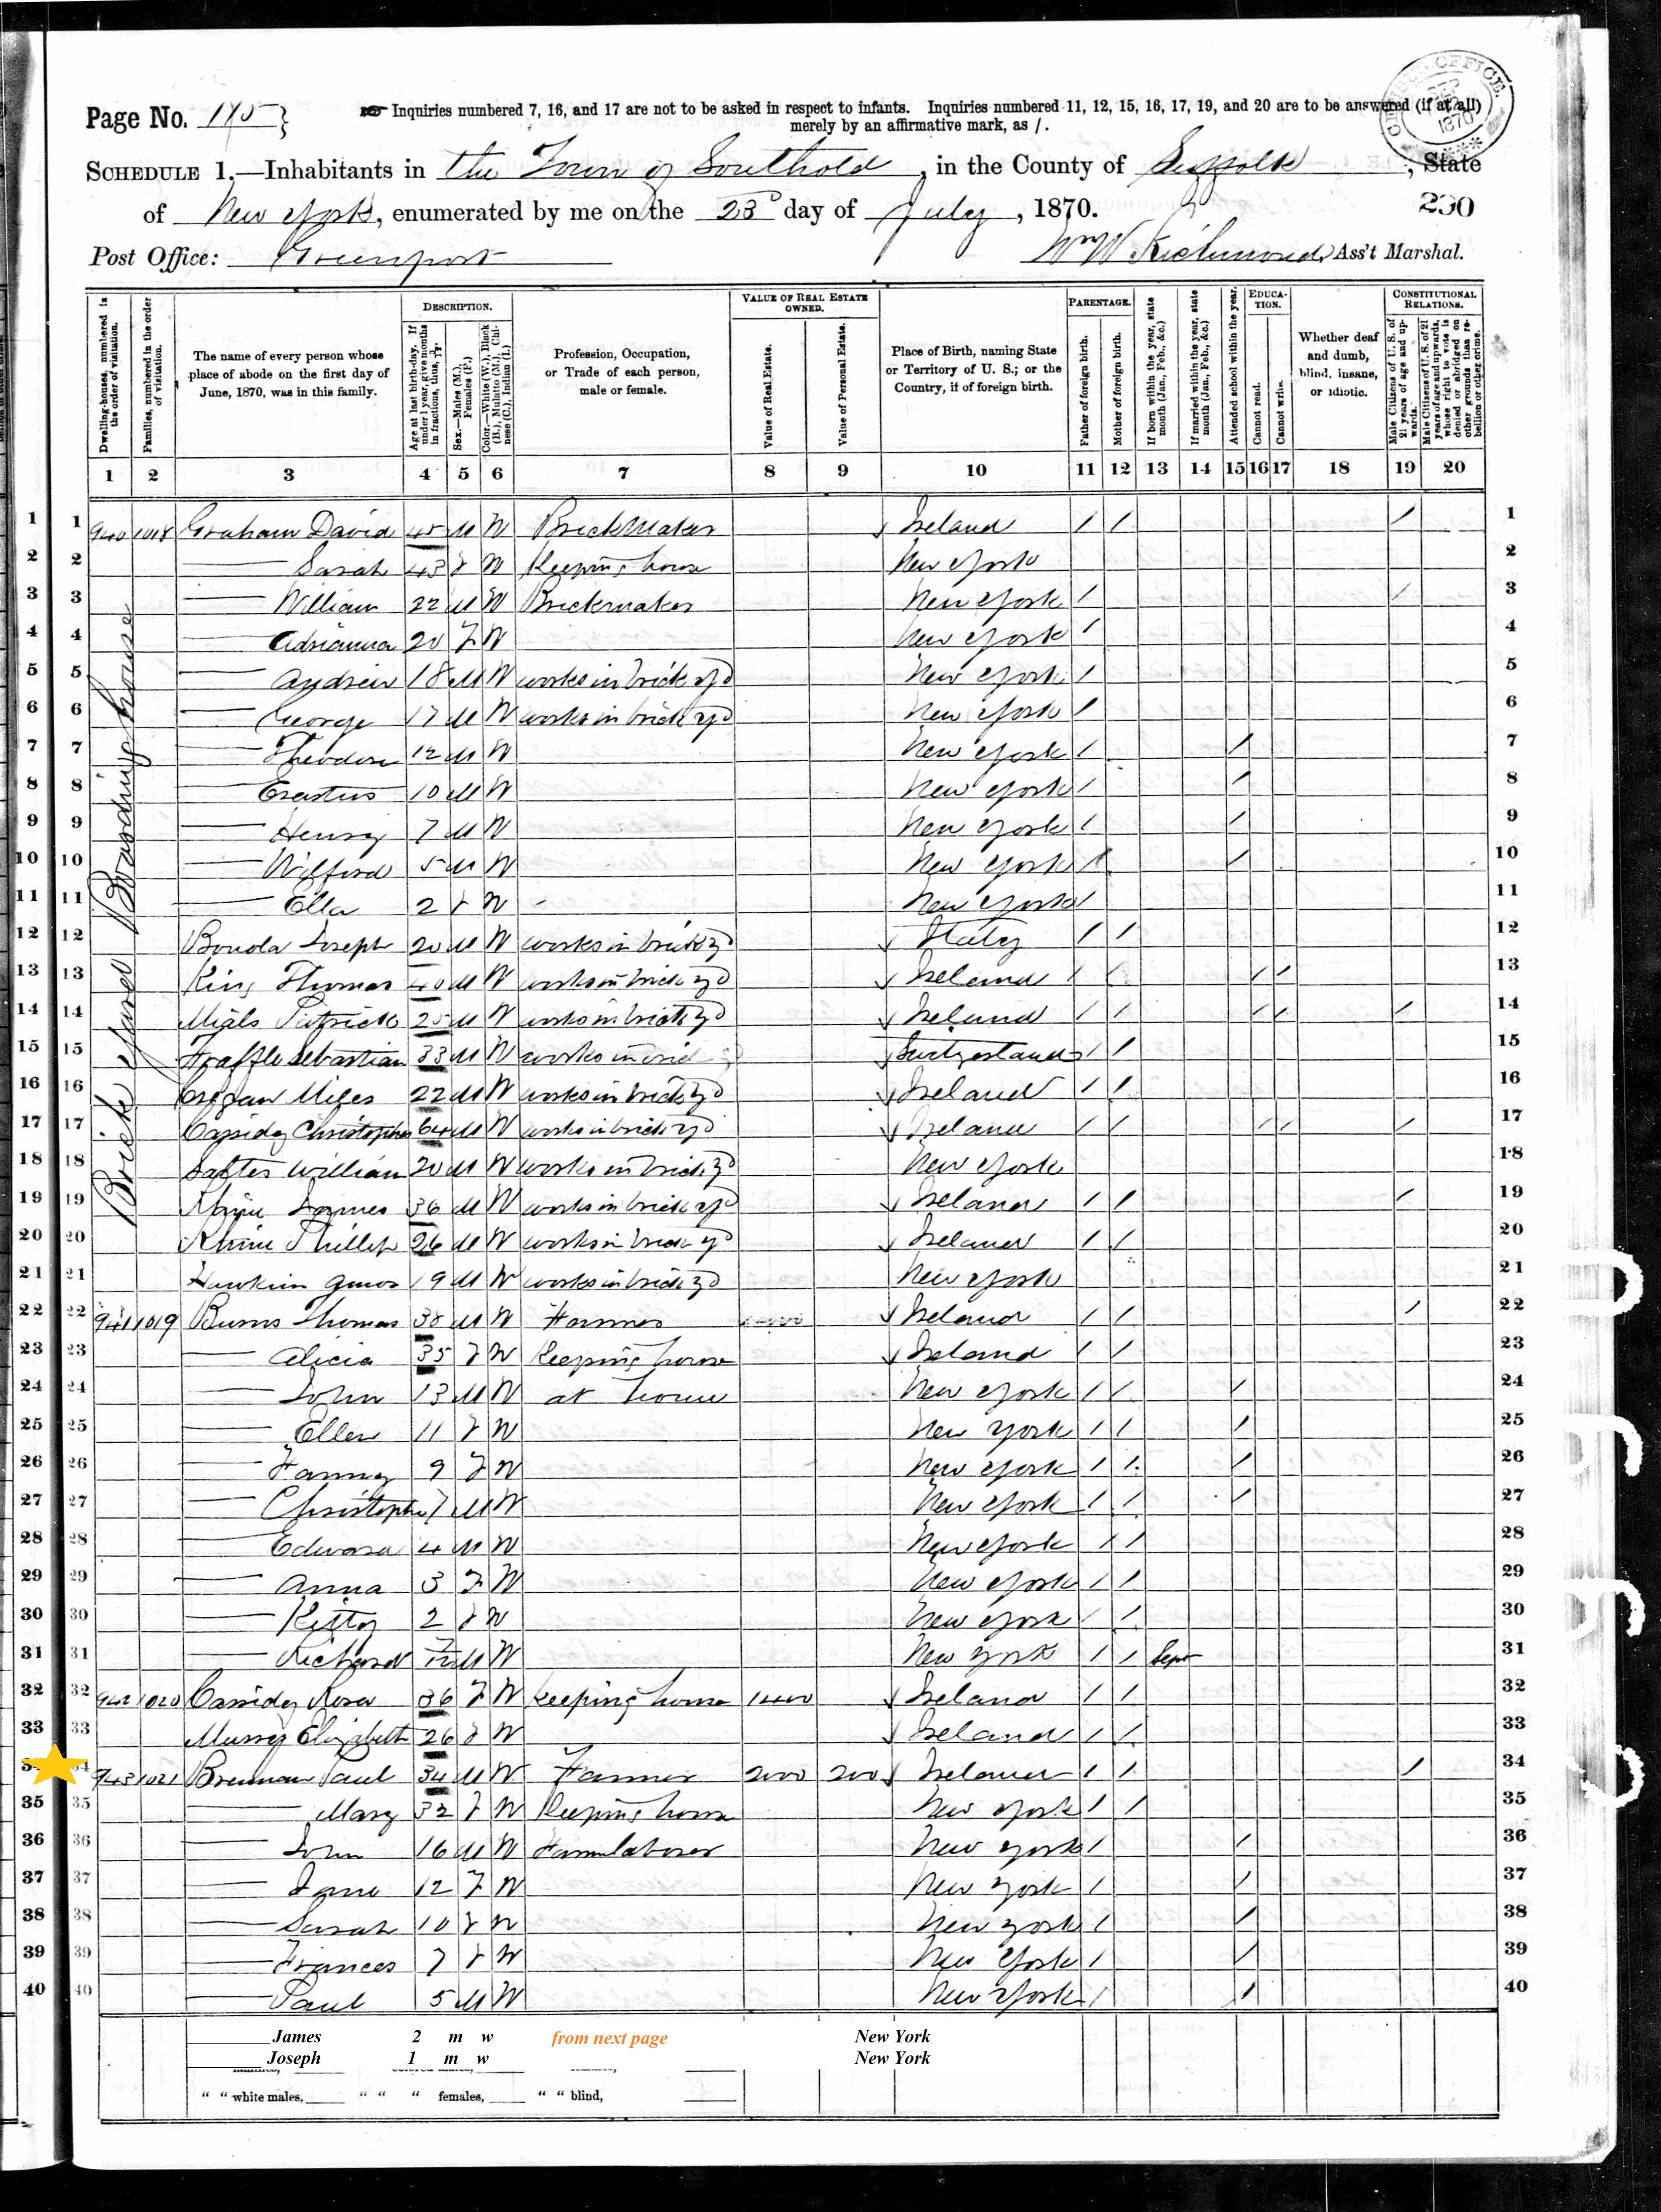 Page No. 115
Inquiries numbered 7, 16, and 17 are not to be asked in respect to infants. Inquiries numbered 11, 12, 15, 16, 17, 19, and 20 are to be answered (if at all)
merely by an affirmative mark, as /.
SCHEDULE 1.—Inhabitants in the Town of Southold, in the County of Suffolk, State
of New York, enumerated by me on the 23d day of July, 1870.
230
Post Office: Greenport
Wm W Richmond, Ass't Marshal.
CENSUS OFFICE 1870
Dwelling-houses, numbered in the order of visitation.
Families, numbered in the order of visitation.
The name of every person whose place of abode on the first day of June, 1870, was in this family.
DESCRIPTION.
Age at last birth-day. If under 1 year, give months in fractions, thus, 3/12.
Sex.—Males (M.), Females (F.)
Color.—White (W.), Black (B.), Mulatto (M.), Chinese (C.), Indian (I.)
Profession, Occupation, or Trade of each person, male or female.
VALUE OF REAL ESTATE OWNED.
Value of Real Estate.
Value of Personal Estate.
Place of Birth, naming State or Territory of U. S.; or the Country, if of foreign birth.
PARENTAGE.
Father of foreign birth.
Mother of foreign birth.
If born within the year, state month (Jan., Feb., &c.)
If married within the year, state month (Jan., Feb., &c.)
Attended school within the year.
EDUCATION.
Cannot read.
Cannot write.
Whether deaf and dumb, blind, insane, or idiotic.
CONSTITUTIONAL RELATIONS.
Male Citizens of U. S. of 21 years of age and upwards.
Male Citizens of U. S. of 21 years of age and upwards, whose right to vote is denied or abridged on other grounds than rebellion or other crime.
1 2 3 4 5 6 7 8 9 10 11 12 13 14 15 16 17 18 19 20
Brick Yard Boarding house
1 1 940 1018 Graham David 45 M W BrickMaker Ireland / / / 1
2 2 — Sarah 43 F W Keeping house New York 2
3 3 — William 22 M W Brickmaker New York / / 3
4 4 — Adrianna 20 F W New York / 4
5 5 — Andrew 18 M W works in brick yd New York / 5
6 6 — George 17 M W works in brick yd New York / 6
7 7 — Theodore 12 M W New York / / 7
8 8 — Erastus 10 M W New York / / 8
9 9 — Henry 7 M W New York / / 9
10 10 — Wilford 5 M W New York / / 10
11 11 — Ella 2 F W New York / 11
12 12 Joseph 20 M W works in brick yd Italy / / 12
13 13 King Thomas 40 M W works in brick yd Ireland / / / / 13
14 14 Patrick 25 M W works in brick yd Ireland / / / / / 14
15 15 Sebastian 33 M W works in Switzerland / / 15
16 16 Miles 22 M W works in brick yd Ireland / / 16
17 17 Cassidy Christopher 64 M W works in brick yd Ireland / / / / / 17
18 18 William 20 M W works in brick yd New York 18
19 19 James 36 M W works in brick yd Ireland / / / 19
20 20 Phillip 26 M W works in brick yd Ireland / / 20
21 21 19 M W works in brick yd New York 21
22 22 941 1019 Burns Thomas 38 M W Farmer Ireland / / / 22
23 23 — Alicia 35 F W Keeping house Ireland / / 23
24 24 — John 13 M W at home New York / / / 24
25 25 — Ellen 11 F W New York / / / 25
26 26 — Fanny 9 F W New York / / / 26
27 27 — Christopher 7 M W New York / / / 27
28 28 — Edward 4 M W New York / / 28
29 29 — Anna 3 F W New York / / 29
30 30 — Kitty 2 F W New York / / 30
31 31 — Richard M W New York / / Sept 31
32 32 942 1020 Cassidy Rosa 36 F W Keeping house 1400 Ireland / / 32
33 33 Murry Elizabeth 26 F W Ireland / / 33
943 1021 Brennan Paul 34 M W Farmer 2000 200 Ireland / / / 34
35 35 — Mary 32 F W Keeping house New York / / 35
36 36 — John 16 M W Farm laborer New York / / 36
37 37 — Jane 12 F W New York / / 37
38 38 — Sarah 10 F W New York / / 38
39 39 — Frances 7 F W New York / / 39
40 40 — Paul 5 M W New York / / 40
James 2 m w from next page New York
Joseph 1 m w New York
“ “ white males, “ “ “ females, “ “ blind,